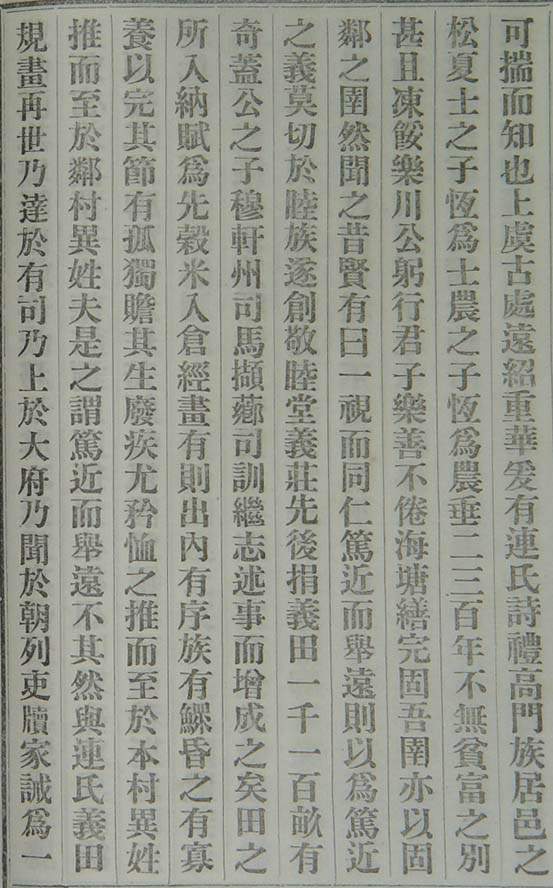 可揣而知也上虞古處遠紹重華爰有連氏詩禮高門族居邑之
松夏士之子恆爲士農之子恆爲農垂二三百年不無貧富之別
甚且凍餒樂川公躬行君子樂善不倦海塘繕完固吾圉亦以固
鄰之圉然聞之昔賢有曰一視而同仁篤近而舉遠則以爲篤近
之義莫切於睦族遂創敬睦堂義莊先後捐義田一千一百畝有
奇蓋公之子穆軒州司馬擷薌司訓繼志述事而增成之矣田之
所入納賦爲先穀米入倉經畫有則出內有序族有鰥昏之有寡
養以完其節有孤獨贍其生廢疾尤矜恤之推而至於本村異姓
推而至於鄰村異姓夫是之謂篤近而舉遠不其然與連氏義田
規畫再世乃達於有司乃上於大府乃聞於朝列吏牘家誡爲一